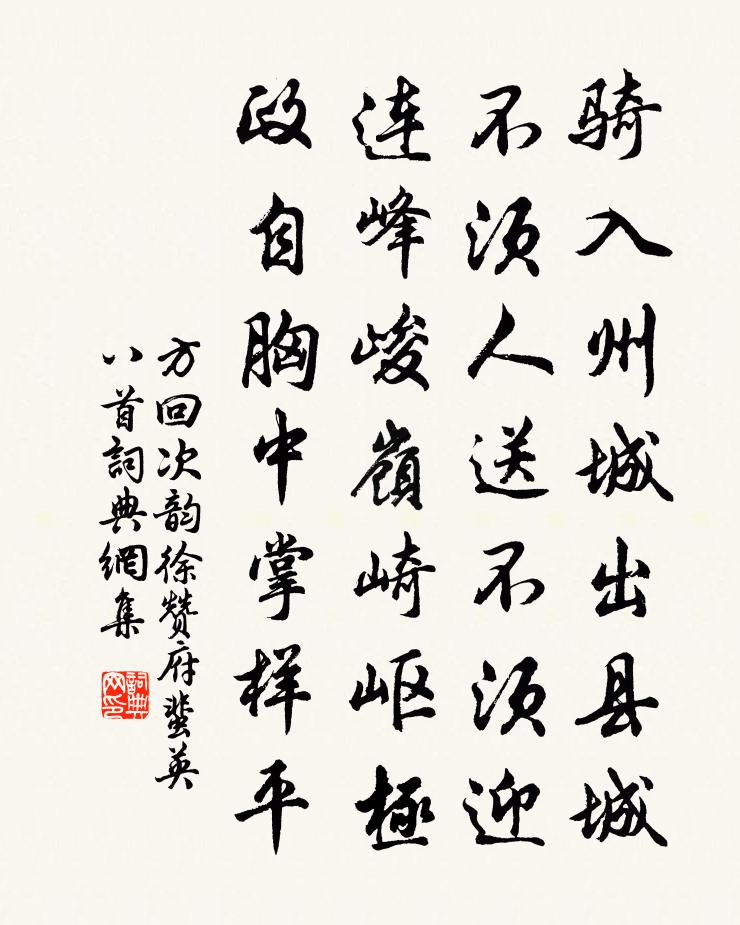 骑入州城出县城
不须人送不须迎
連峰峻嶺崎岖極
政自胸中掌样平
方回次韵徐赞府蜚英
八首詞典網集
詞典网印